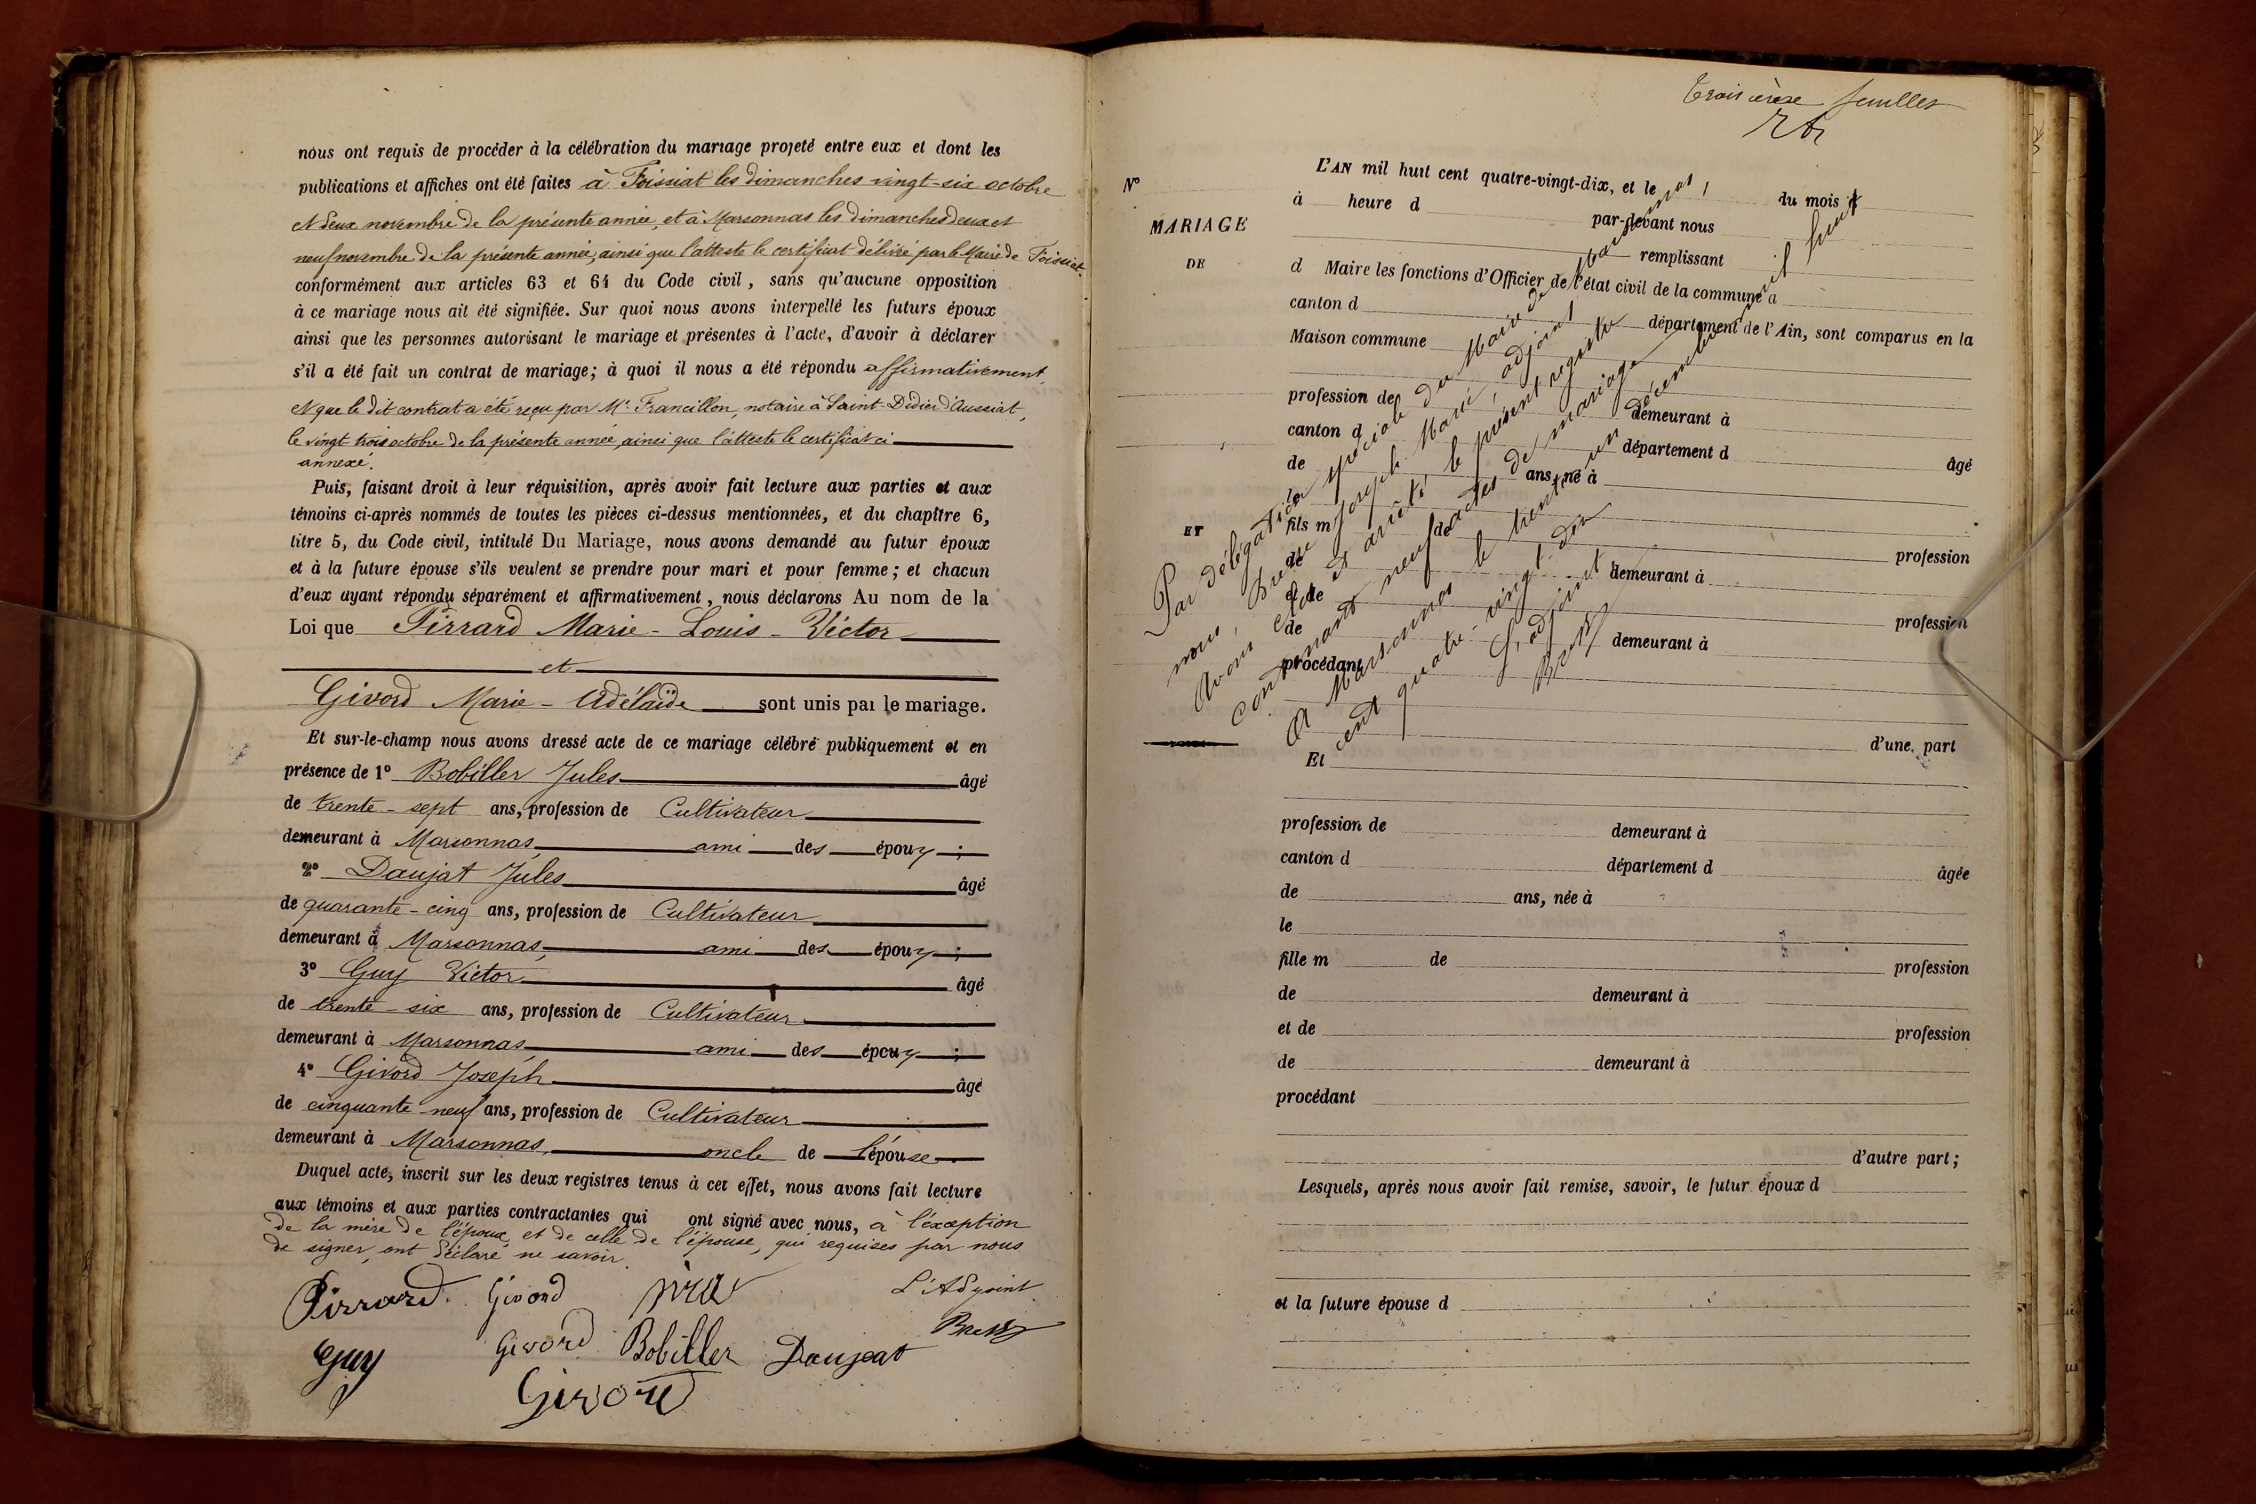 nous ont requis de procéder à la célébration du mariage projeté entre eux et dont les
publications et affiches ont été faites à Foissiat les dimanches vingt-six octobre
et deux novembre de la présente année, et à Marsonnas les dimanches deux et
neuf novembre de la présente année, ainsi que l'atteste le certificat délivré par le Maire de Foissiat.
conformément aux articles 63 et 64 du Code civil, sans qu'aucune opposition
à ce mariage nous ait été signifiée. Sur quoi nous avons interpellé les futurs époux
ainsi que les personnes autorisant le mariage et présentes à l'acte, d'avoir à déclarer
s'il a été fait un contrat de mariage; à quoi il nous a été répondu affirmativement,
et que le dit contrat a été reçu par Mc Francillon, notaire à Saint-Didier d'Aussiat,
le vingt trois octobre de la présente année, ainsi que l'atteste le certificat ci
annexé.
Puis, faisant droit à leur réquisition, après avoir fait lecture aux parties et aux
témoins ci-après nommés de toutes les pièces ci-dessus mentionnées, et du chapître 6,
titre 5, du Code civil, intitulé Du Mariage, nous avons demandé au futur époux
et à la future épouse s'ils veulent se prendre pour mari et pour femme; et chacun
d'eux ayant répondu séparément et affirmativement, nous déclarons Au nom de la
Loi que Pirrard Marie-Louis-Victor
et
Givord Marie-Adélaïde sont unis par le mariage.
Et sur-le-champ nous avons dressé acte de ce mariage célébré publiquement et en
présence de 1° Bobiller Jules âgé
de trente-sept ans, profession de Cultivateur
demeurant à Marsonnas ami des époux ;
2° Daujat Jules âgé
de quarante-cinq ans, profession de Cultivateur
demeurant à Marsonnas, ami des époux ;
3° Guy Victor âgé
de trente-six ans, profession de Cultivateur
demeurant à Marsonnas ami des époux ;
4° Givord Joseph âgé
de cinquante-neuf ans, profession de Cultivateur
demeurant à Marsonnas, oncle de l'épouse.
Duquel acte, inscrit sur les deux registres tenus à cet effet, nous avons fait lecture
aux témoins et aux parties contractantes qui ont signé avec nous, à l'éxception
de la mère de l'époux, et de celle de l'épouse, qui requises par nous
de signer, ont déclaré ne savoir.
Pirrard Givord L'Adjoint
Guy Givord Bobiller Daujat
Givord
feuilles
L'AN mil huit cent quatre-vingt-dix, et le du mois d
N° à heure d par-devant nous
MARIAGE remplissant
DE d Maire les fonctions d'Officier de l'état civil de la commune d
canton d département de l'Ain, sont comparus en la
Maison commune
profession de demeurant à
canton d département d âgé
de ans, né à
le
ET fils m de profession
de demeurant à
et de profession
de demeurant à
procédant
d'une part
Et
profession de demeurant à
canton d département d âgée
de ans, née à
le
fille m de profession
de demeurant à
et de profession
de demeurant à
procédant
d'autre part;
Lesquels, après nous avoir fait remise, savoir, le futur époux d
et la future épouse d
Par délégation spéciale du Maire de Marsonnas,
nous, Joseph Marie, adjoint
Avons clos et arrêté le présent registre
contenant neuf actes de mariage
A Marsonnas le trente un décembre mil huit
cent quatre-vingt-dix
L'adjoint